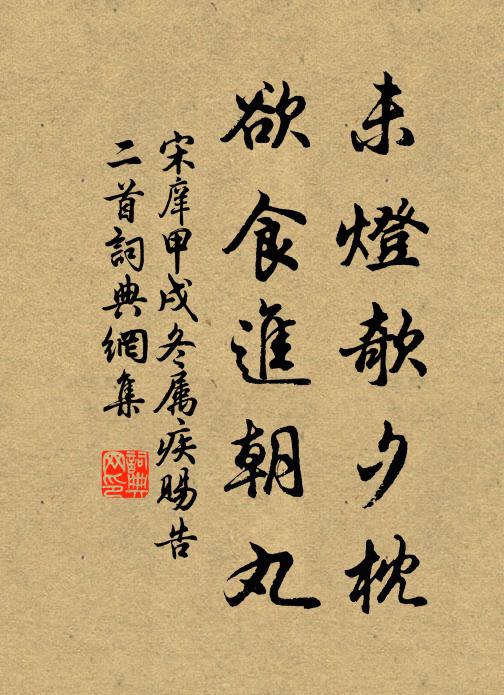 未燈欹夕枕
欲食進朝丸
宋庠甲戌冬属疾賜告
二首詞典網集
詞典网印